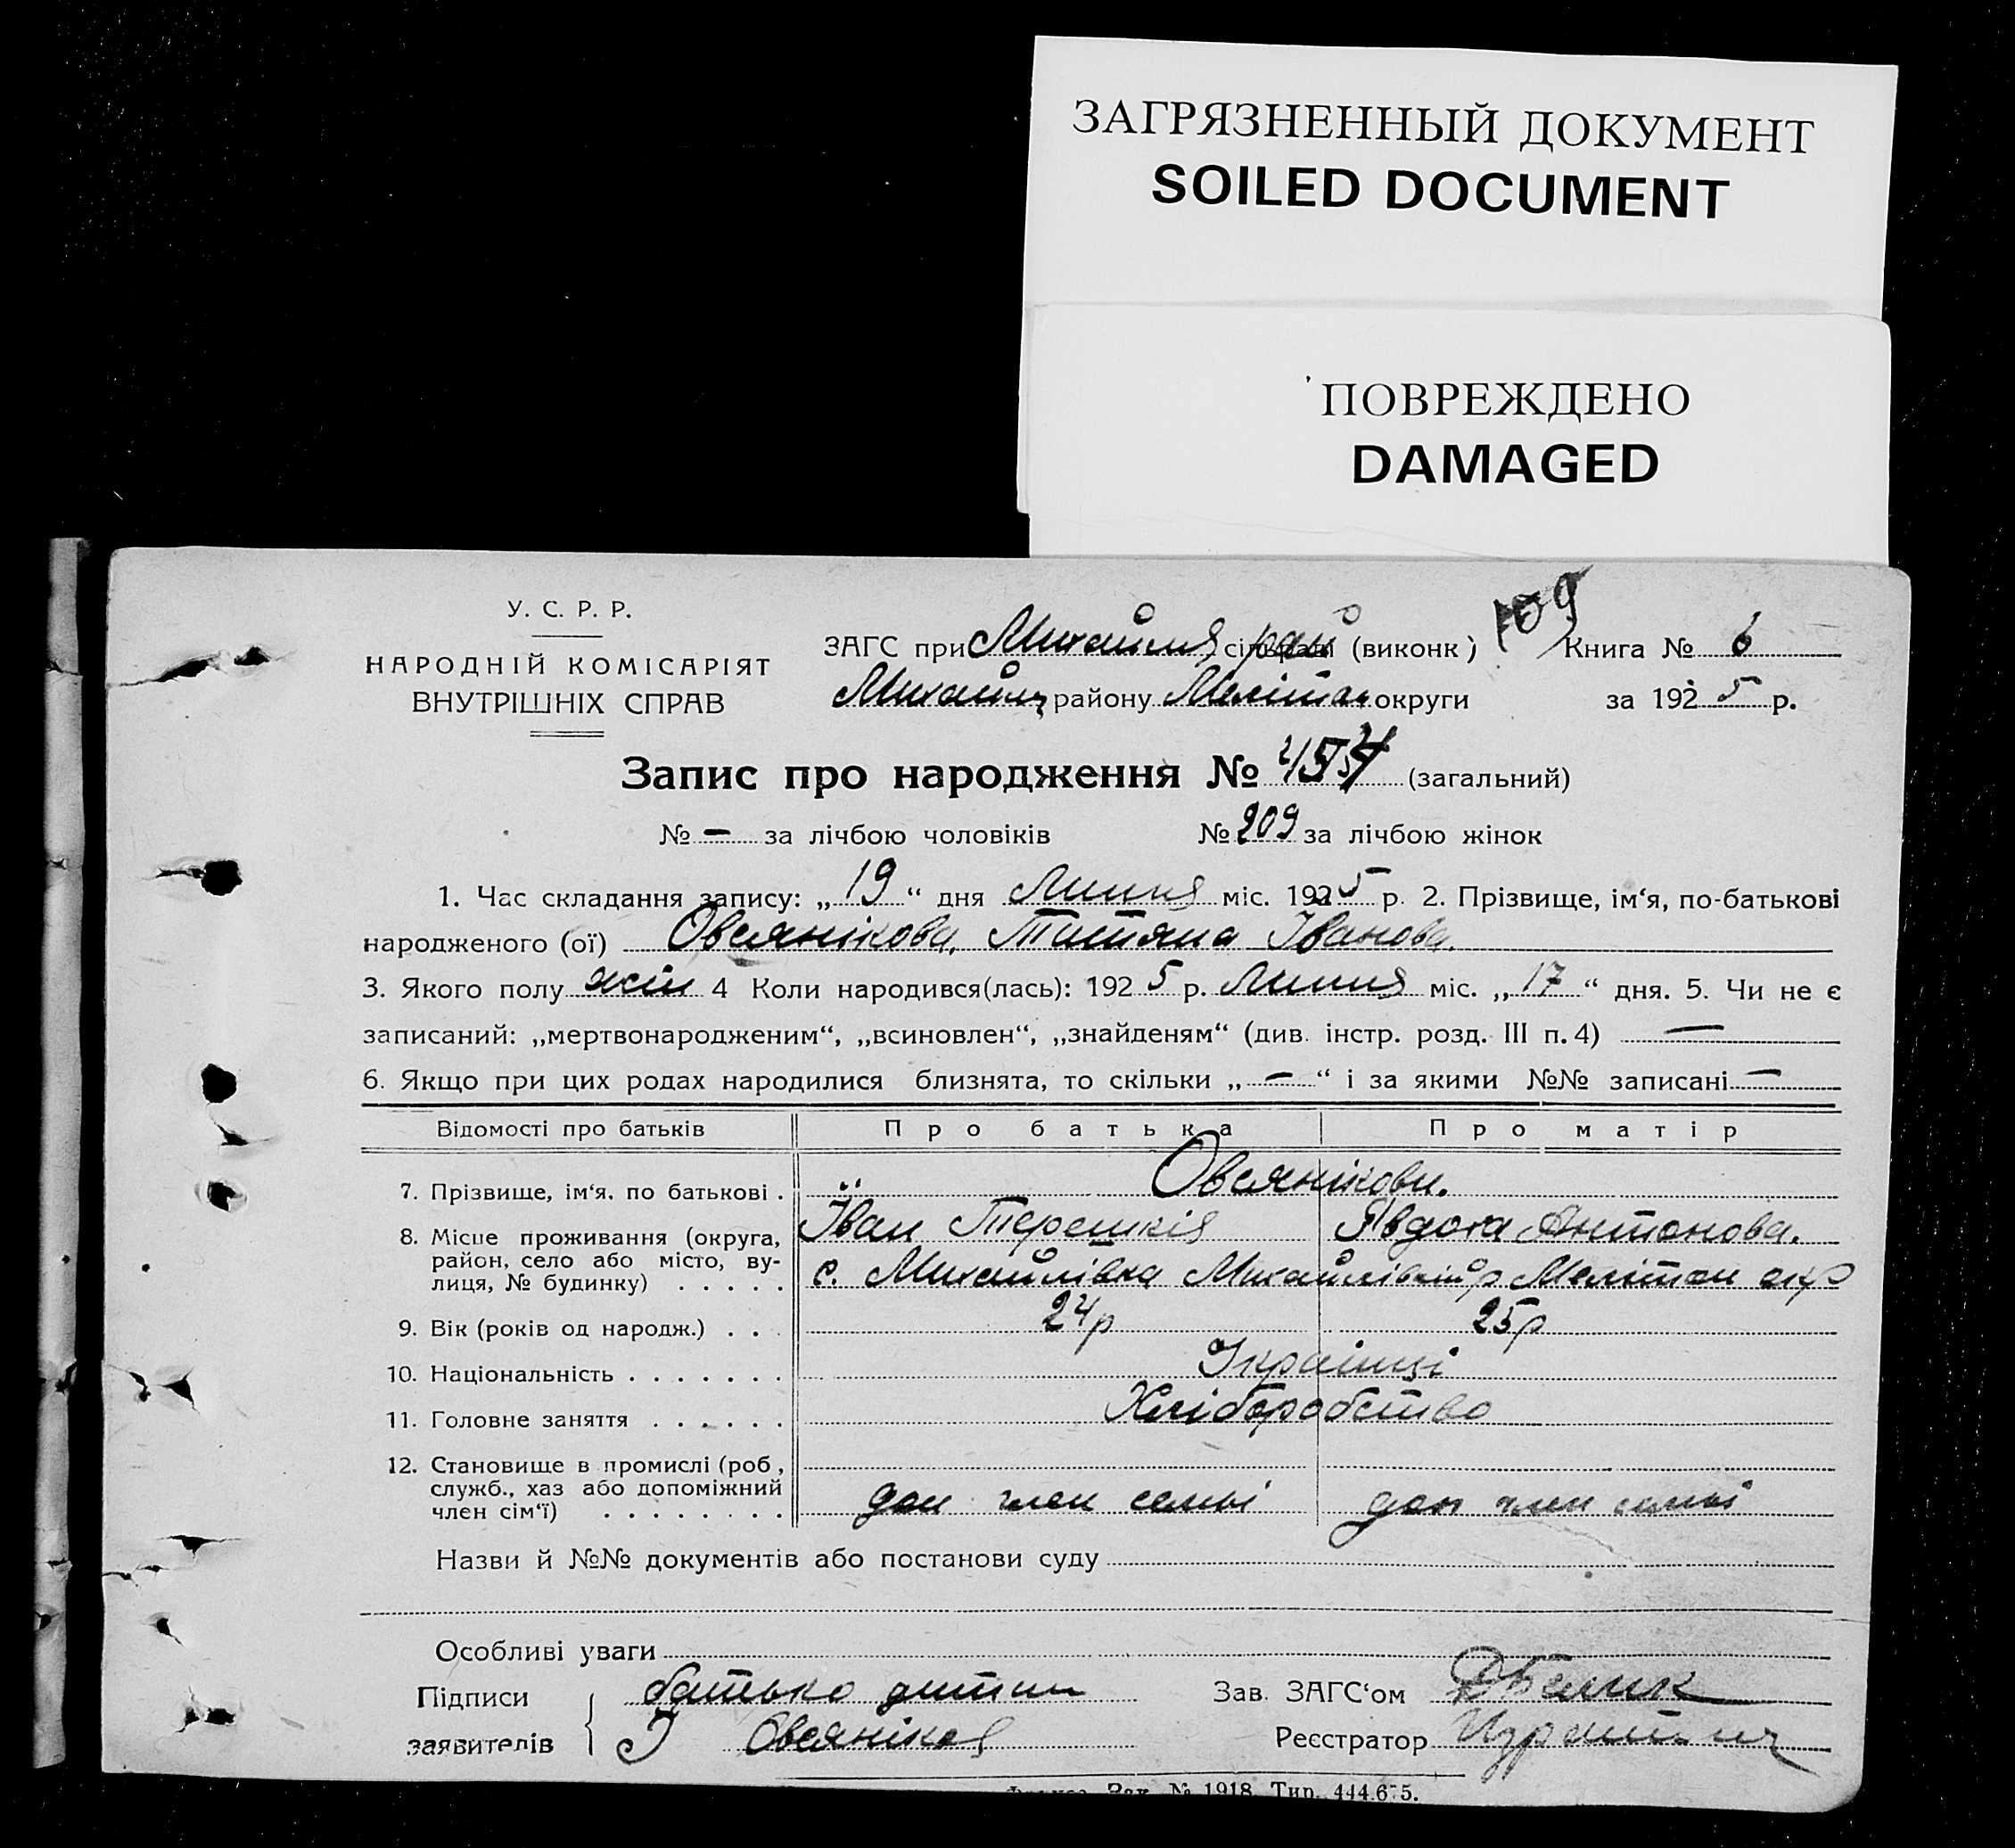 ЗАГРЯЗНЕННЫЙ ДОКУМЕНТ
SOILED DOCUMENT
ПОВРЕЖДЕНО
DAMAGED
У. С. Р. Р.
НАРОДНІЙ КОМІСАРІЯТ
ВНУТРІШНІХ СПРАВ
109
ЗАГС при сільраді (виконк) Книга № 6
району округи за 1925 р.
Запис про народження № (загальний)
№ — за лічбою чоловіків № 209 за лічбою жінок
1. Час складання запису: „19“ дня Липня міс. 1925 р. 2. Прізвище, ім‘я, по-батькові
народженого (ої) Овсянікова, Татяна Іванова.
3. Якого полу жін 4 Коли народився(лась): 1925 р. Липня міс. „17“ дня. 5. Чи не є
записаний: „мертвонародженим“, „всиновлен“, „знайденям“ (див. інстр. розд. III п. 4) —
6. Якщо при цих родах народилися близнята, то скільки „—“ і за якими №№ записані —
Відомості про батьків Про батька Про матір
7. Прізвище, ім‘я, по батькові . Овсянікови.
Іван Явдоха Антонова.
8. Місце проживання (округа,
район, село або місто, ву-
лиця, № будинку) . . . . . с. Михайлівка окр
9. Вік (років од народж.) . . . 24р 25р
10. Національність . . . . . . . Українці
11. Головне заняття . . . . . . Хліборобство
12. Становище в промислі (роб.,
служб., хаз або допоміжний
член сім‘ї) . . . . . . . . доп член семьі доп член семьі
Назви й №№ документів або постанови суду
Особливі уваги
Підписи батько Зав. ЗАГС‘ом
заявителів І Овсяніков Реєстратор
Зак. № 1918. Тир. 444.675.